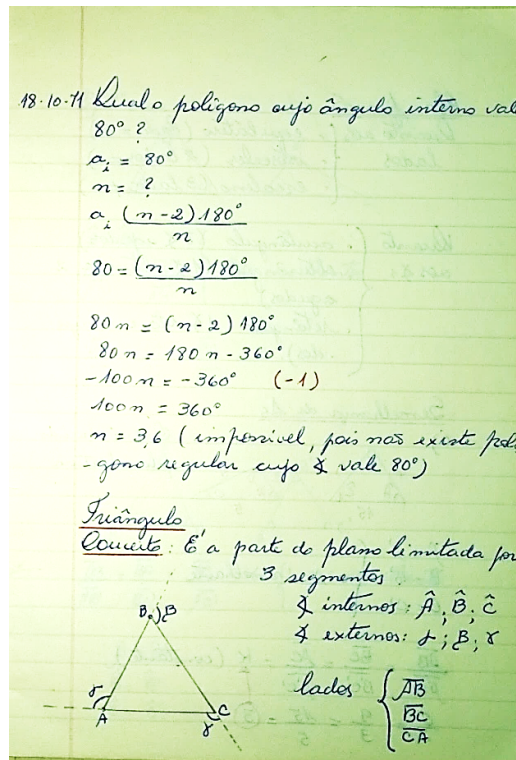 18-10-71 Qual o polígono cujo ângulo interno vale
80° ?
ai = 80°
n = ?
ai (n-2)180°
n
80 = (n-2)180°
n
80n = (n-2) 180°
80n = 180n - 360°
-100n = -360° (-1)
100n = 360°
n = 3,6 (impossível, pois não existe polí
-gono regular cujo ∢ vale 80°)
Triângulo
Conceito: É a parte do plano limitada por
3 segmentos
∢ internos: Â; B̂; Ĉ
∢ externos: α; β; γ
lados { AB
BC
CA
B β
γ
A
C
γ